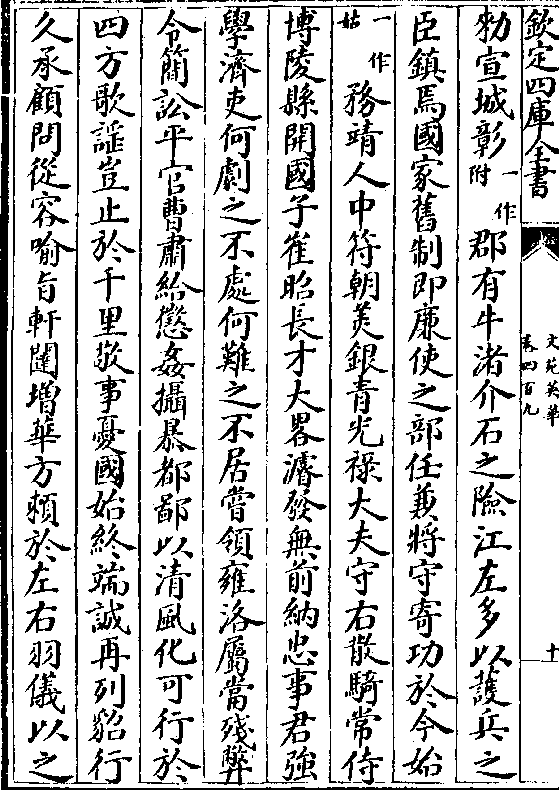 欽定四庫全書
文苑英華
卷四百九
十
勑宣城彰一作附郡有牛渚介石之險江左多以護兵之
臣鎮焉國家舊制即廉使之部任兼將守寄功於今始
一作姑務靖人中符朝美銀青光祿大夫守右散騎常侍
博陵縣開國子崔昭長才大畧濬發無前納忠事君強
學濟吏何劇之不處何難之不居嘗領雍洛屬當殘弊
令簡訟平官曹肅給懲姦攝暴都鄙以清風化可行於
四方歌謡豈止於千里敬事憂國始終端誠再列貂行
久承顧問從容喻旨軒闥増華方頼於左右羽儀以之